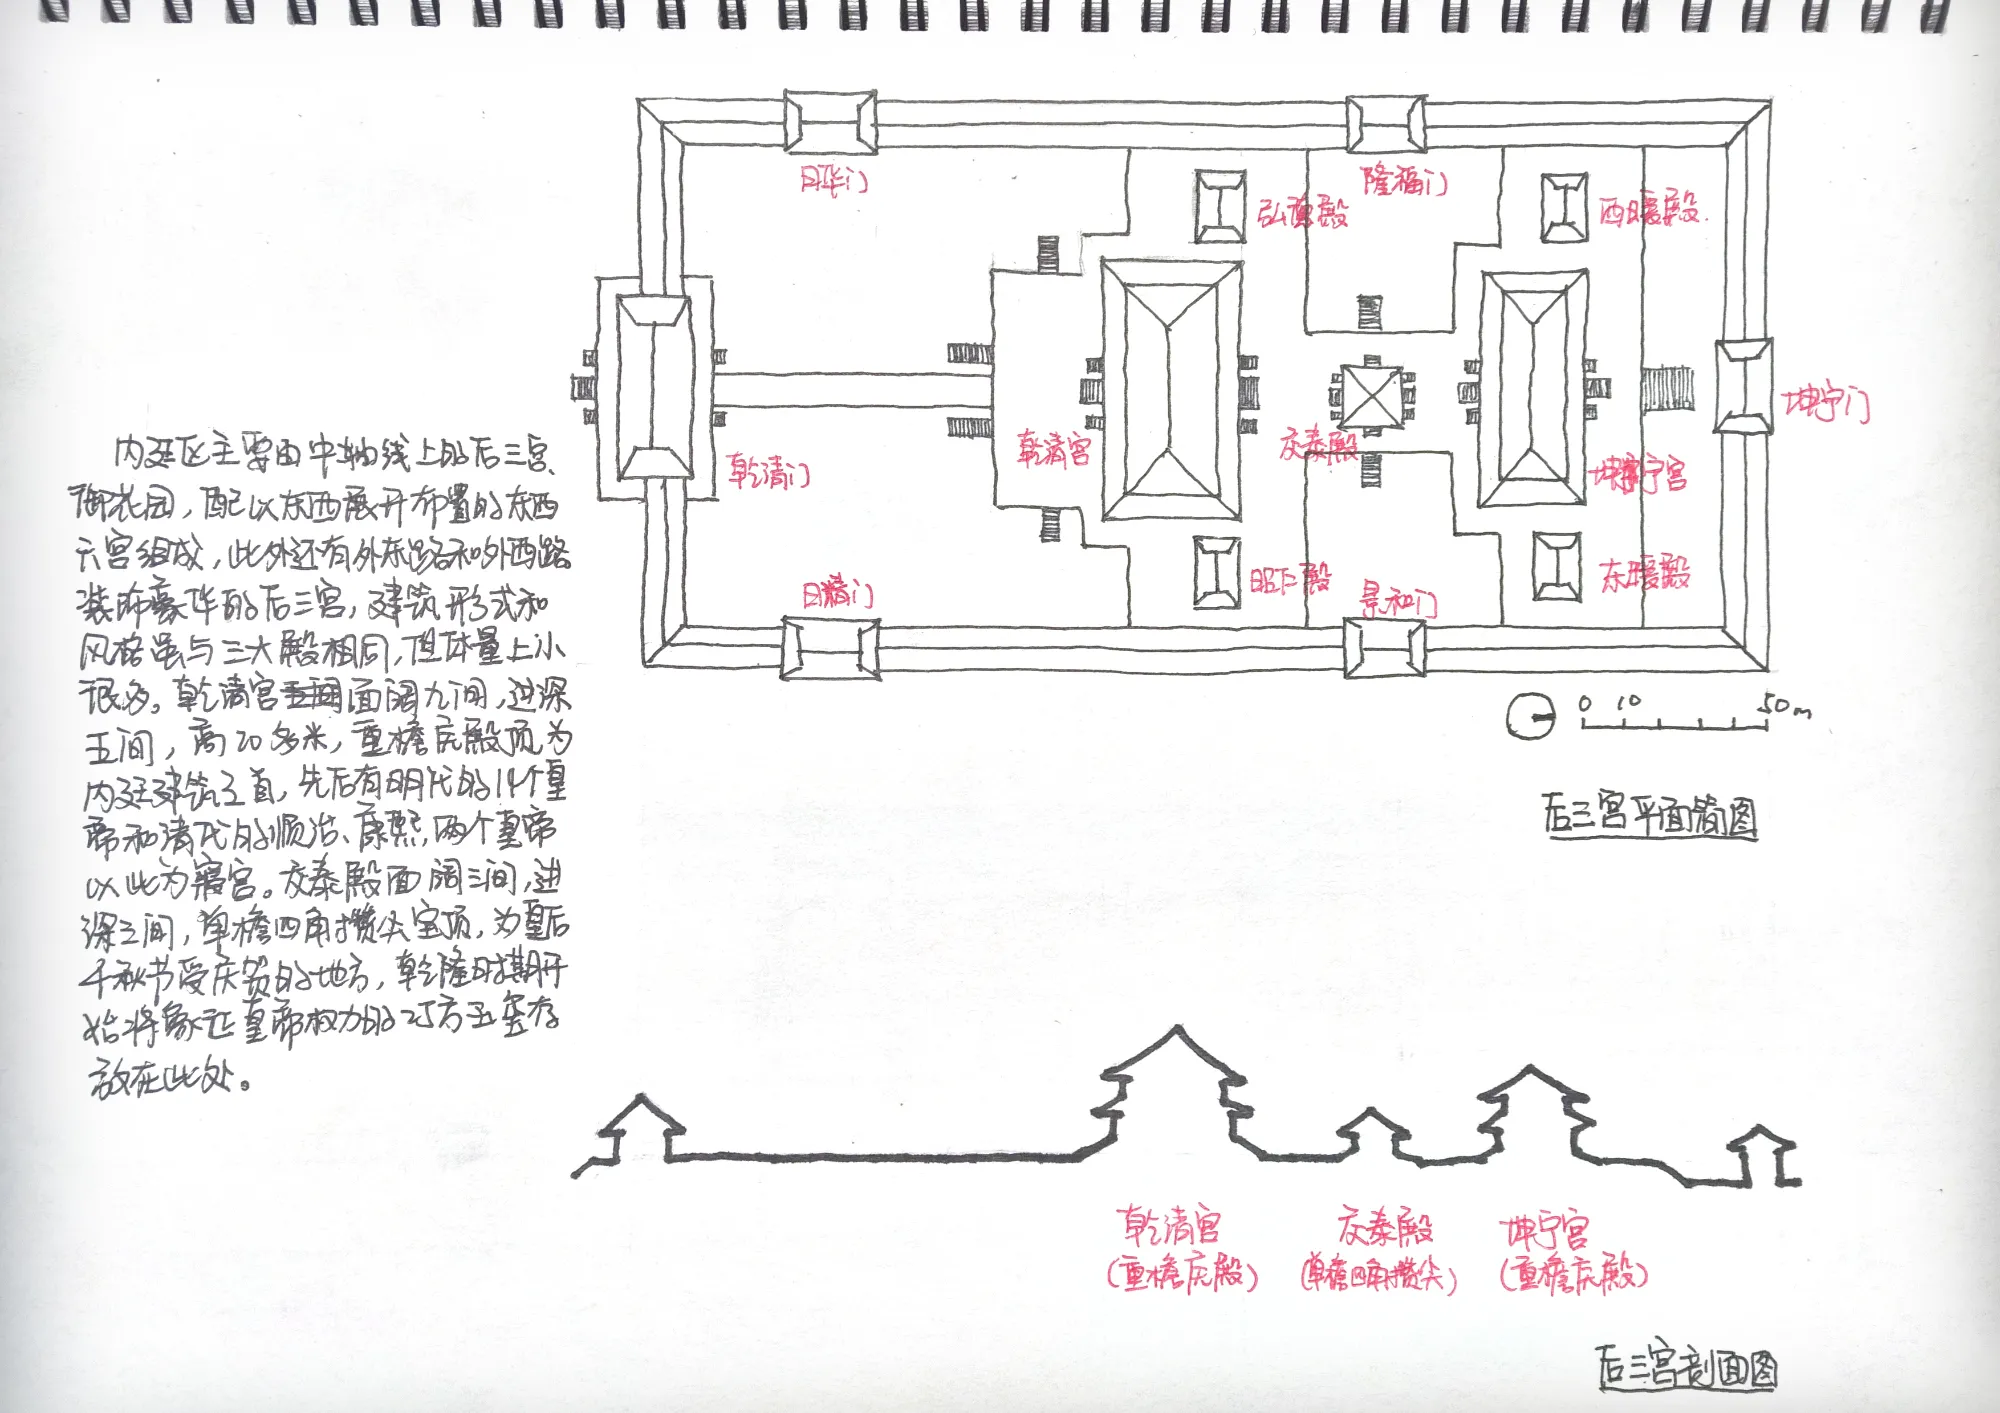 内廷区主要由中轴线上的后三宫、
御花园，配以东西展开布置的东西
六宫组成，此外还有外东路和外西路。
装饰豪华的后三宫，建筑形式和
风格虽与三大殿相同，但体量上小
很多。乾清宫面阔九间，进深
五间，高20多米，重檐庑殿顶，为
内廷建筑之首，先后有明代的14个皇
帝和清代的顺治、康熙，两个皇帝
以此为寝宫。交泰殿面阔三间，进
深三间，单檐四角攒尖宝顶，为皇后
千秋节受庆贺的地方，乾隆时期开
始将象征皇帝权力的25方玉玺存
放在此处。
日华门
隆福门
弘德殿
西暖殿
乾清门
乾清宫
交泰殿
坤宁宫
坤宁门
日精门
昭仁殿
景和门
东暖殿
0 10 50m
后三宫平面简图
乾清宫
(重檐庑殿)
交泰殿
(单檐四角攒尖)
坤宁宫
(重檐庑殿)
后三宫剖面图